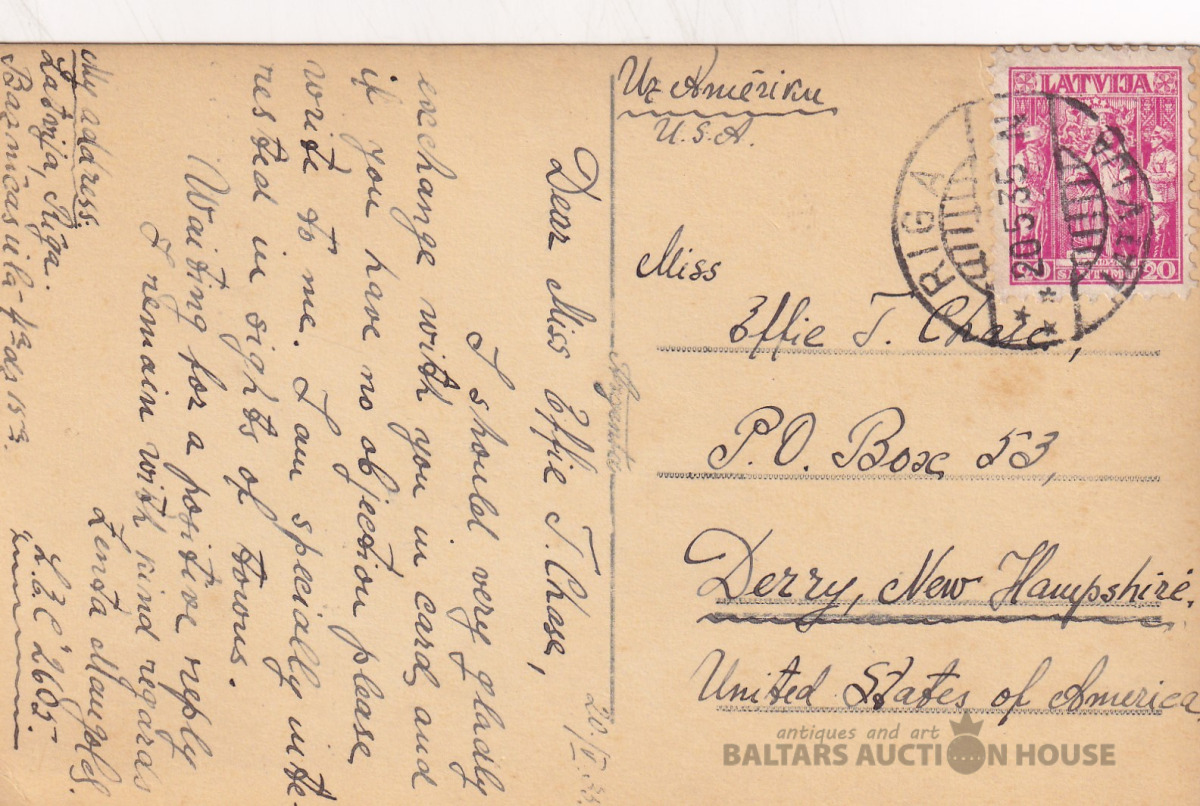 Uz Amēriku
U.S.A.
Miss
Effie T. Chase,
P.O. Box 53,
Derry, New Hampshire,
United States of America
LATVIJA
20 SANTIMU 20
RIGA
20 5 35
LATVIJA
Dear Miss Effie T. Chase,
I should very gladly
exchange with you in card, and
if you have no objection please
write to me. I am specially inte-
rested in sights of towns.
Waiting for a positive reply
I remain with kind regards
Zenta
My address:
Latvija, Rīga.
Baznīcas ielā
20./V.35.
antiques and art
BALTARS AUCTION HOUSE